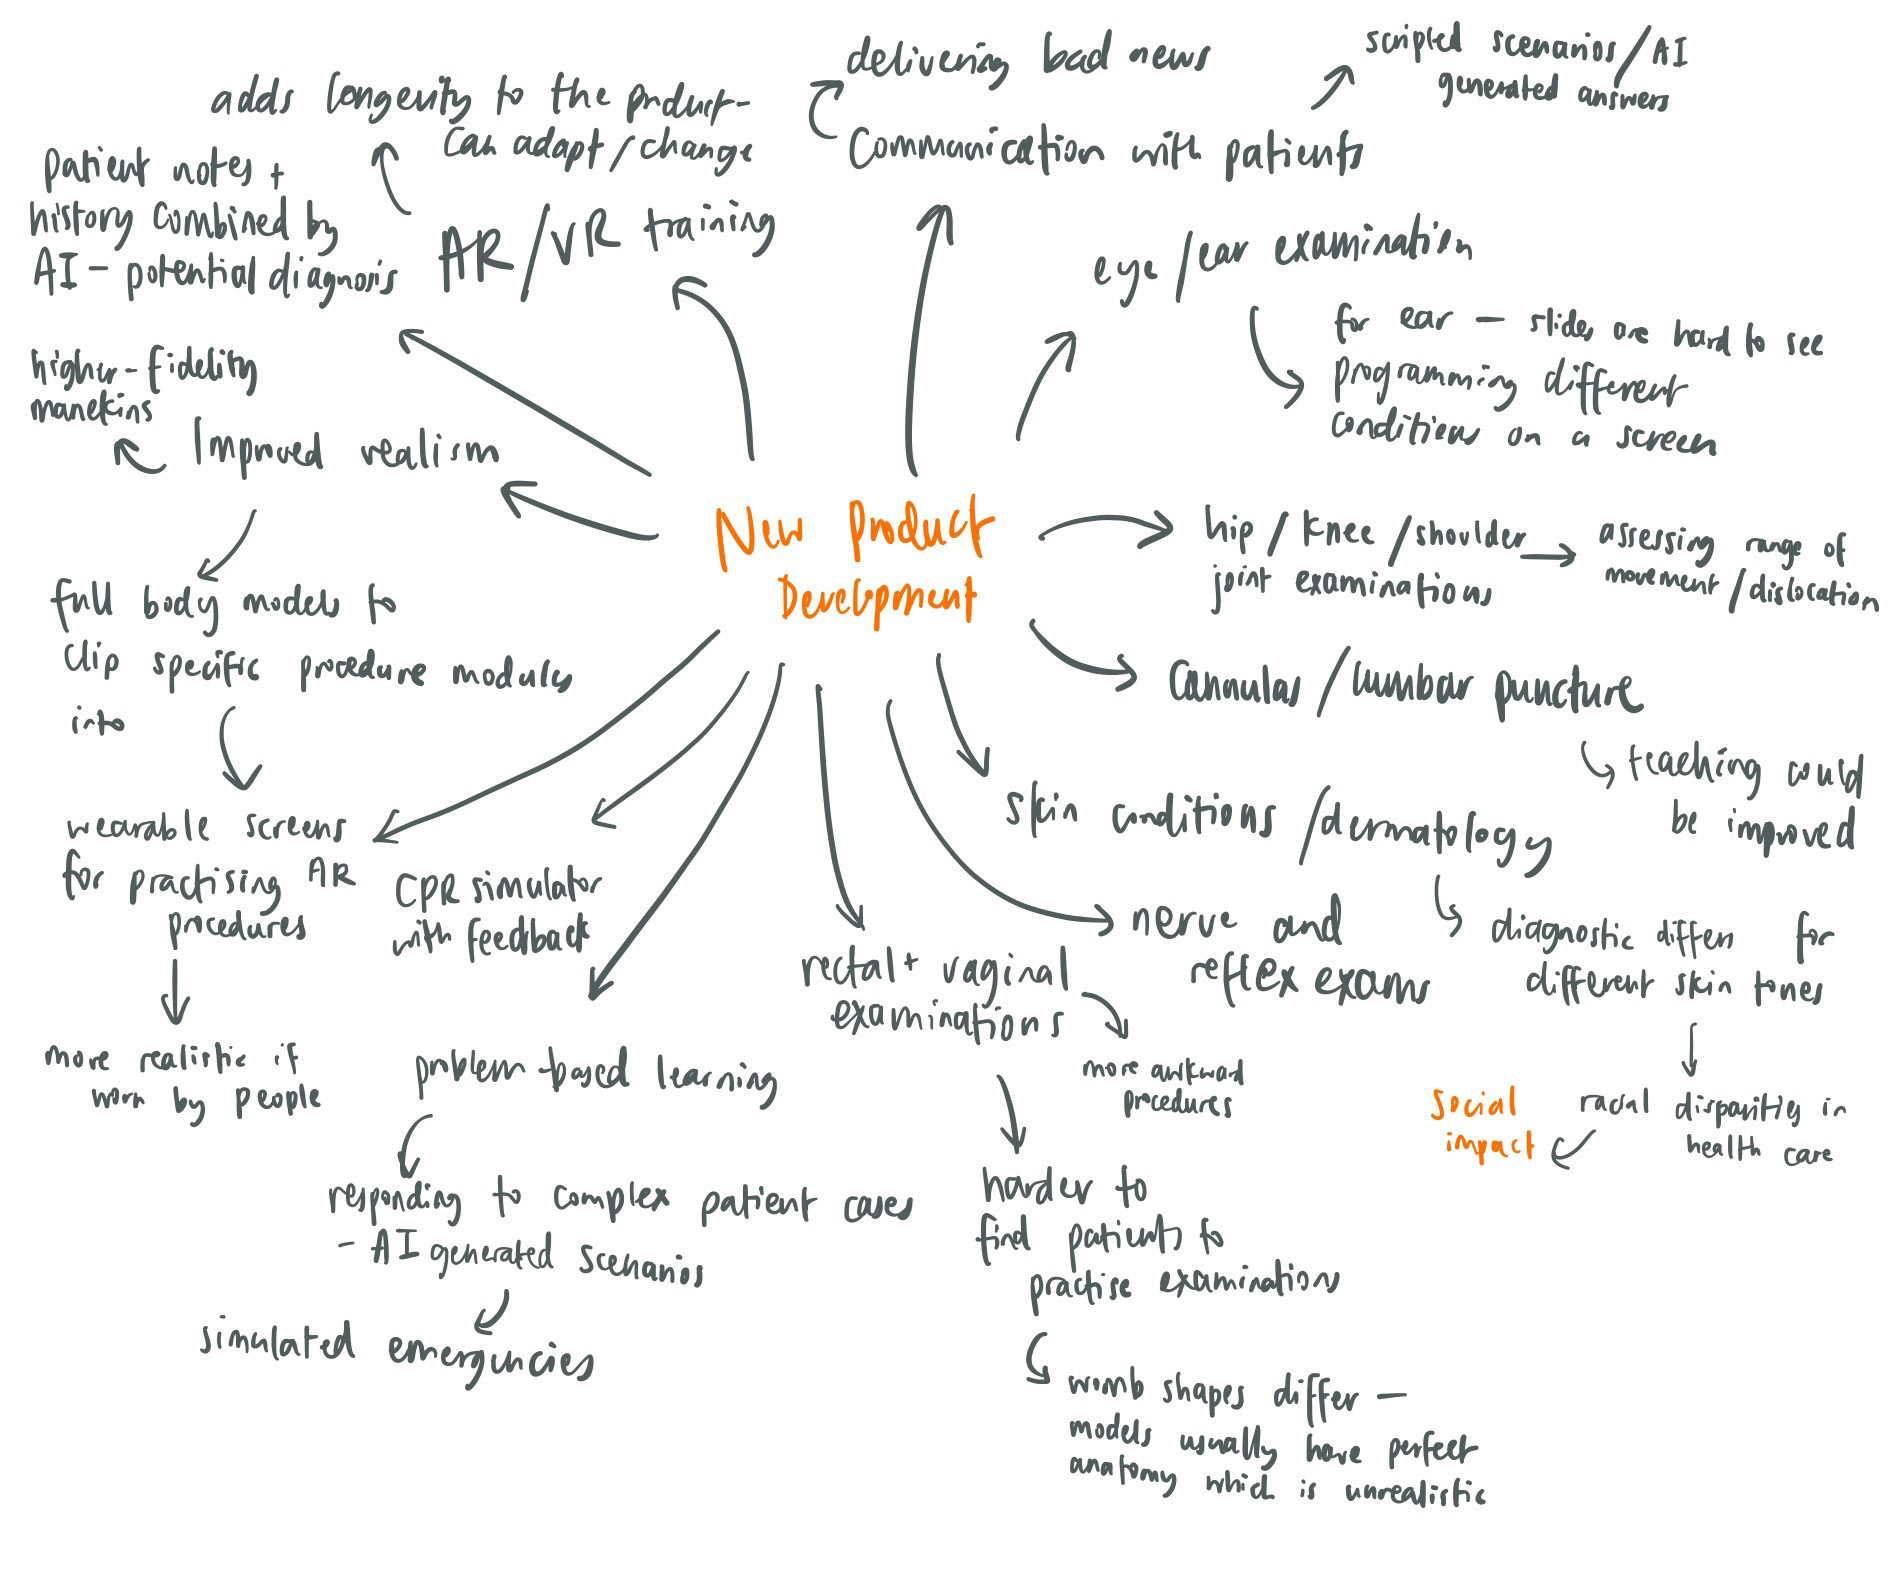 New Product
Development
delivering bad news
Communication with patients
scripted scenarios/AI
generated answers
eye/ear examination
for ear - slides are hard to see
programming different
conditions on a screen
hip/knee/shoulder
joint examinations
assessing range of
movement/dislocation
cannulas/lumbar puncture
teaching could
be improved
skin conditions/dermatology
diagnostic differs for
different skin tones
racial disparities in
health care
social
impact
nerve and
reflex exams
rectal + vaginal
examinations
more awkward
procedures
harder to
find patients to
practise examinations
womb shapes differ -
models usually have perfect
anatomy which is unrealistic
problem-based learning
responding to complex patient cases
- AI generated scenarios
simulated emergencies
CPR simulator
with feedback
wearable screens
for practising AR
procedures
more realistic if
worn by people
Improved realism
higher-fidelity
manekins
full body models to
clip specific procedure modules
into
patient notes +
history combined by
AI - potential diagnosis
AR/VR training
adds longevity to the product-
can adapt/change